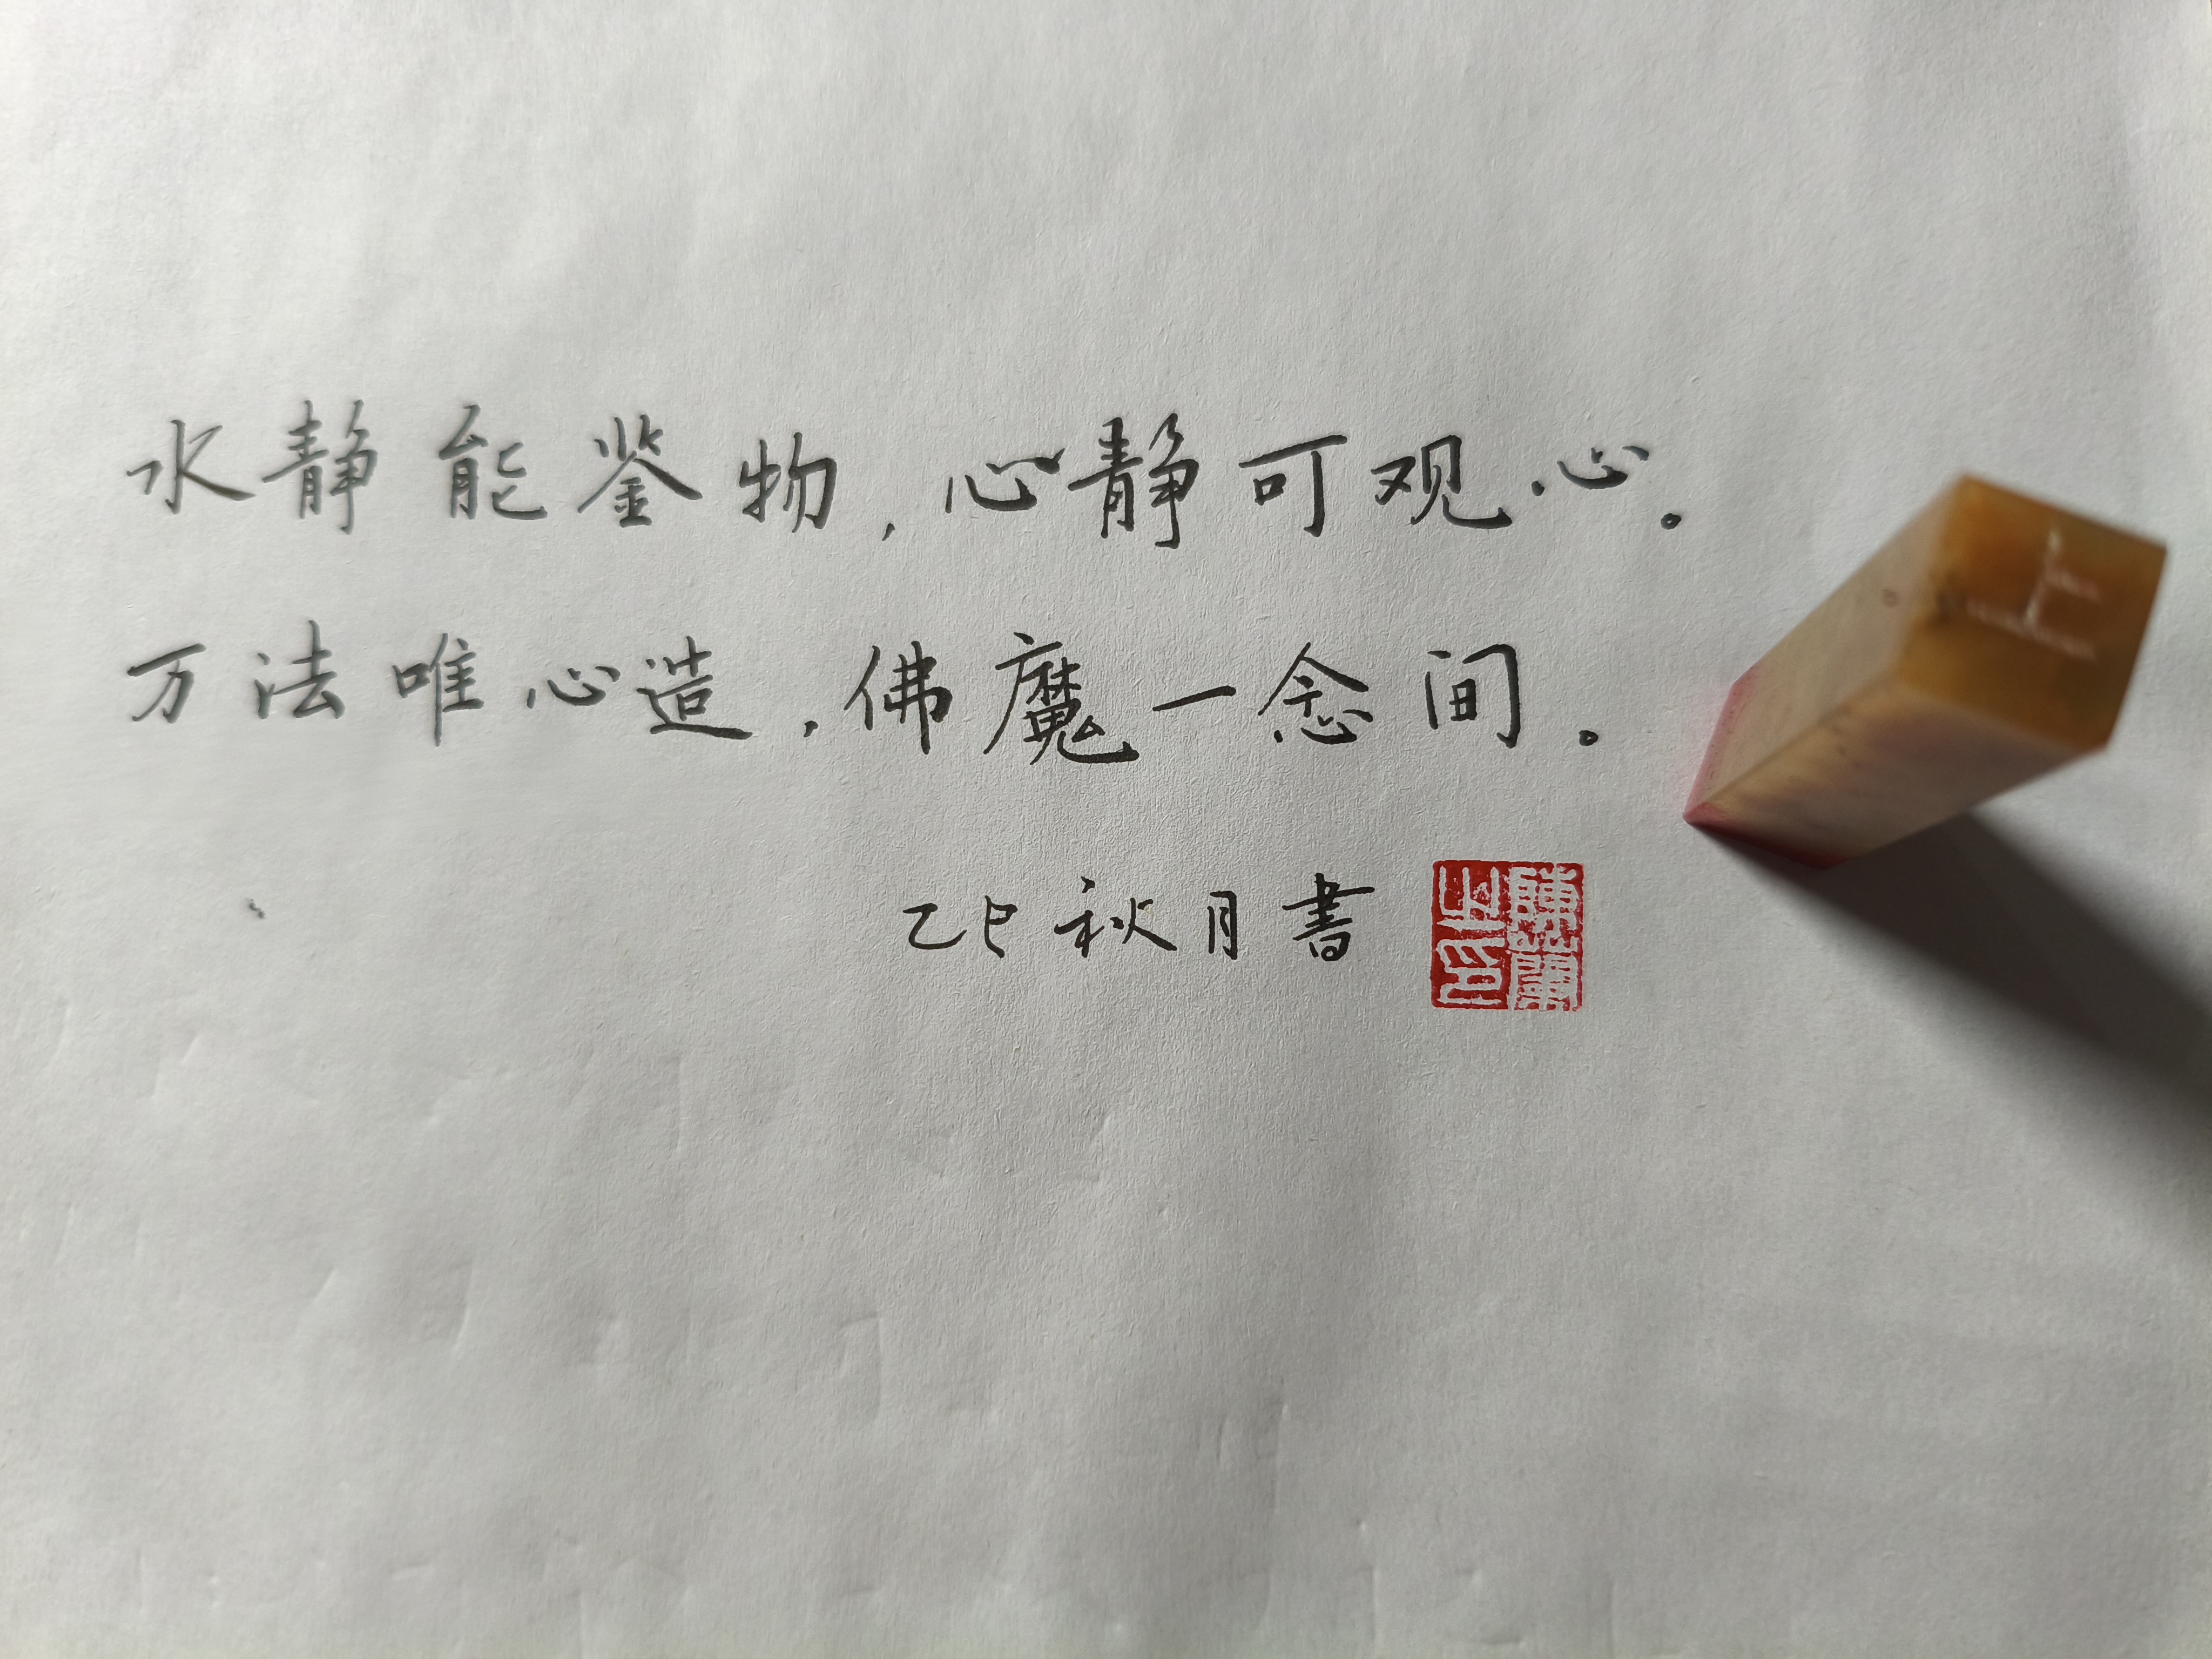 水静能鉴物，心静可观心。
万法唯心造，佛魔一念间。
乙巳秋月書
上